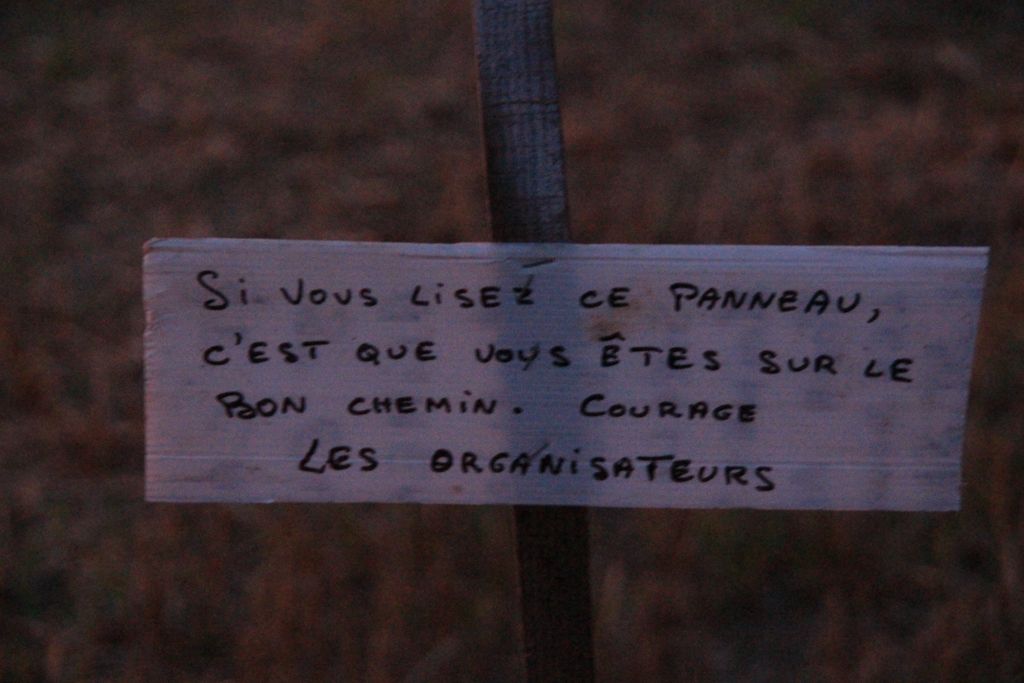 Si vous lisez ce panneau,
c'est que vous êtes sur le
bon chemin. Courage
Les organisateurs